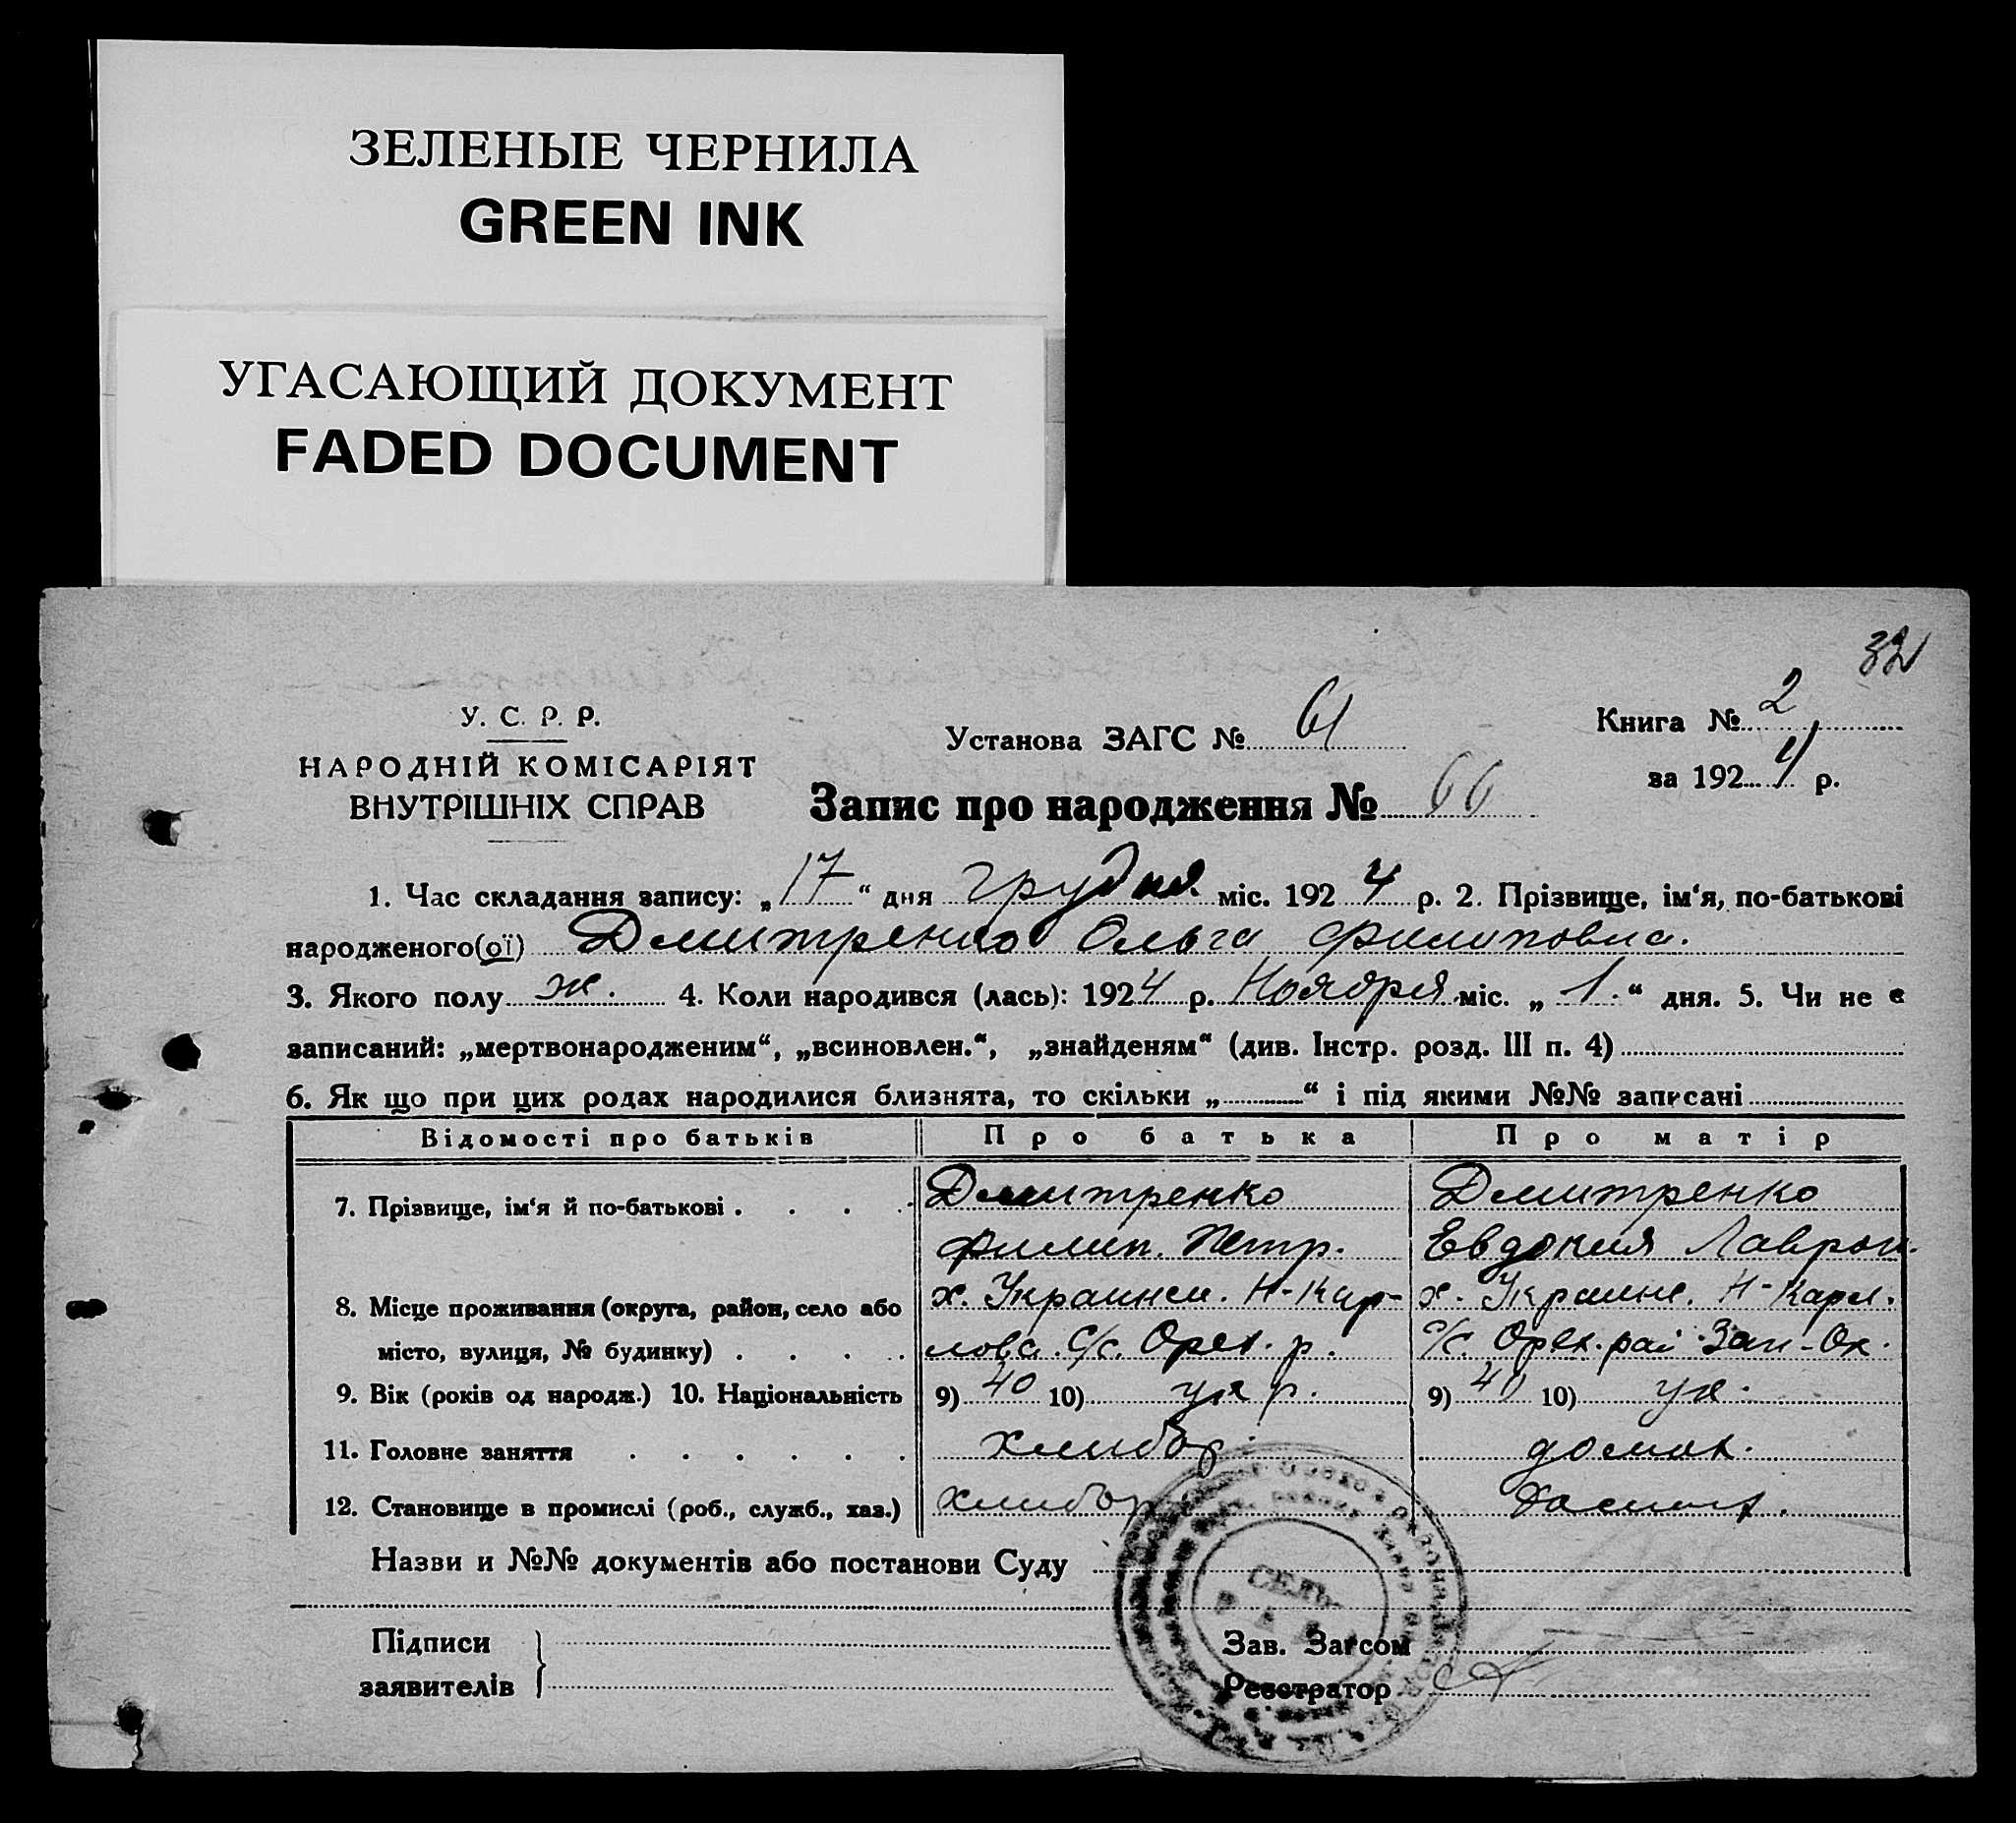 ЗЕЛЕНЫЕ ЧЕРНИЛА
GREEN INK
УГАСАЮЩИЙ ДОКУМЕНТ
FADED DOCUMENT
32
У. С. Р. Р.
НАРОДНІЙ КОМІСАРІЯТ
ВНУТРІШНІХ СПРАВ
Установа ЗАГС № 61
Книга № 2
за 1924 р.
Запис про народження № 66
1. Час складання запису: „17“ дня грудня міс. 1924 р. 2. Прізвище, ім‘я, по-батькові
народженого(ої) Дмитренко Ольга Филиповна.
3. Якого полу ж. 4. Коли народився (лась): 1924 р. Ноября міс. „1.“ дня. 5. Чи не є
записаний: „мертвонародженим“, „всиновлен.“, „знайденям“ (див. Інстр. розд. III п. 4)
6. Як що при цих родах народилися близнята, то скільки „ “ і під якими №№ записані
Відомості про батьків Про батька Про матір
7. Прізвище, ім‘я й по-батькові . . . . Дмитренко Дмитренко
Филип. Петр. Евдокия Лаврон.
8. Місце проживання (округа, район, село або х. Украинск. Н-Кар- х. Украине. Н-Карл.
місто, вулиця, № будинку) . . . . лова. С/с. Орех. р. С/с. Орех. рай Зап-Ок.
9. Вік (років од народж.) 10. Національність 9) 40 10) укр. 9) 40 10) ук.
11. Головне заняття . . . . . . хлибор. домох.
12. Становище в промислі (роб., служб., хаз.) хлибор
Назви и №№ документів або постанови Суду
СЕЛЬ-
Підписи
заявителів
Зав. Загсом
Реєстратор